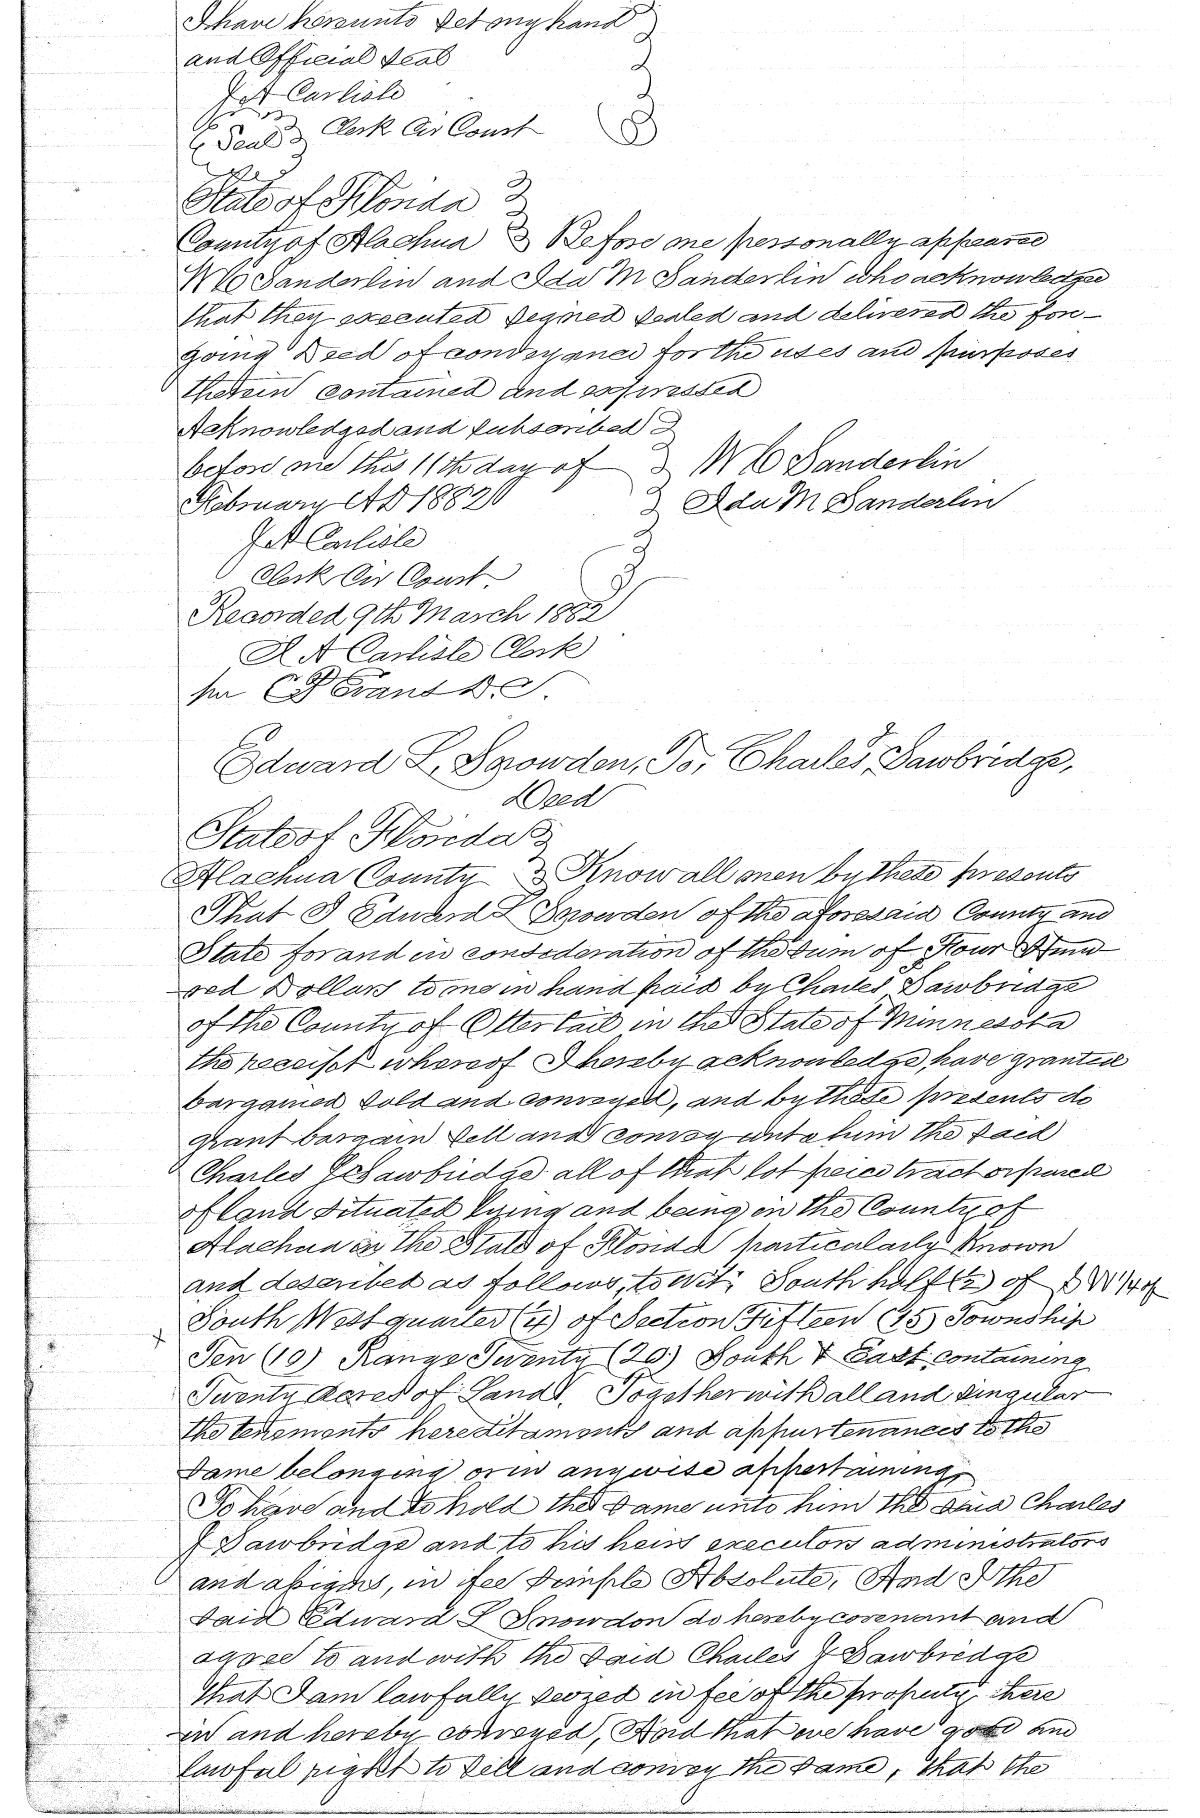 I have hereunto set my hand
and Official Seal
J A Carlisle
Seal Clerk Cir Court
State of Florida
County of Alachua Before me personally appeared
W C Sanderlin and Ida M Sanderlin who acknowledge
that they executed signed sealed and delivered the fore-
going Deed of conveyance for the uses and purposes
therein contained and expressed
Acknowledged and subscribed
before me this 11th day of W C Sanderlin
February AD 1882 Ida M Sanderlin
J A Carlisle
Clerk Cir Court.
Recorded 9th March 1882
J A Carlisle Clerk
per Evans D. C.
Edward L, Snowden, To, Charles, J, Sawbridge,
Deed
State of Florida
Alachua County Know all men by these presents
That I Edward L Snowden of the aforesaid County and
State for and in consideration of the sum of Four Hund
red Dollars to me in hand paid by Charles J Sawbridge
of the County of Otter tail in the State of Minnesota
the receipt whereof I hereby acknowledge, have granted
bargained sold and conveyed, and by these presents do
grant bargain sell and convey unto him the said
Charles J Sawbridge all of that lot peice tract or parcel
of land situated lying and being in the County of
Alachua in the State of Florida particularly Known
and described as follows, to wit; South half (½) of S W 1/4 of
x South West quarter (¼) of Section Fifteen (15) Township
Ten (10) Range Twenty (20) South & East, containing
Twenty Acres of Land. Together with all and singular
the tenements hereditaments and appurtenances to the
same belonging or in anywise appertaining,
To have and to hold the same unto him the said Charles
J Sawbridge and to his heirs executors administrators
and assigns, in fee simple Absolute, And I the
said Edward L Snowdon do hereby covenant and
agree to and with the said Charles J Sawbridge
that I am lawfully seized in fee of the property there
in and hereby conveyed, And that we have good and
lawful right to sell and convey the same, that the